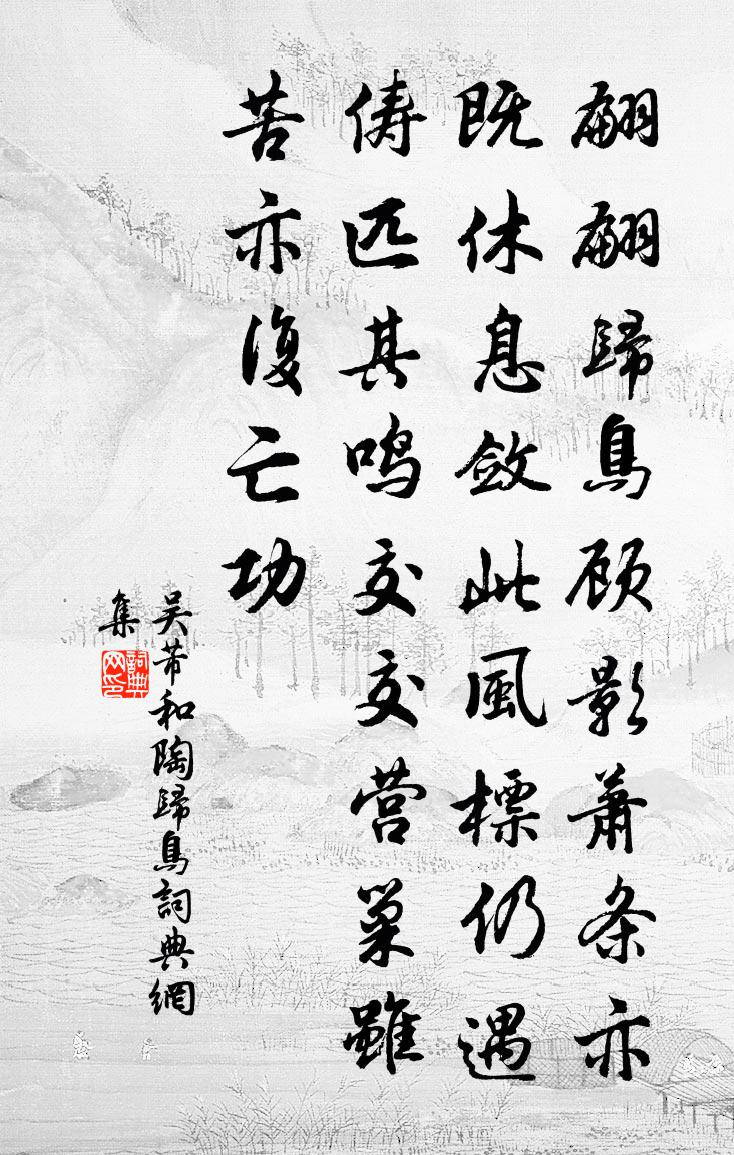 翩翩歸鳥顾影蕭条亦
既休息斂此風標仍遇
俦匹其鸣交交营巢雖
苦亦復亡功
吴芾和陶歸鳥詞典網
集
詞典网印